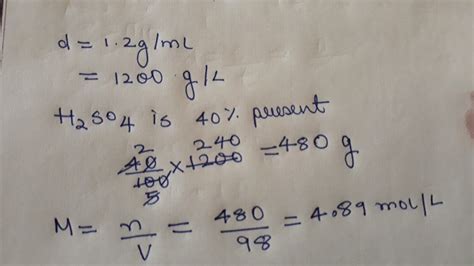 d = 1.2g/mL
= 1200 g/L
H₂SO₄ is 40% present
2 240
40/100 × 1200 = 480 g
5
M = n/V = 480/98 = 4.89 mol/L